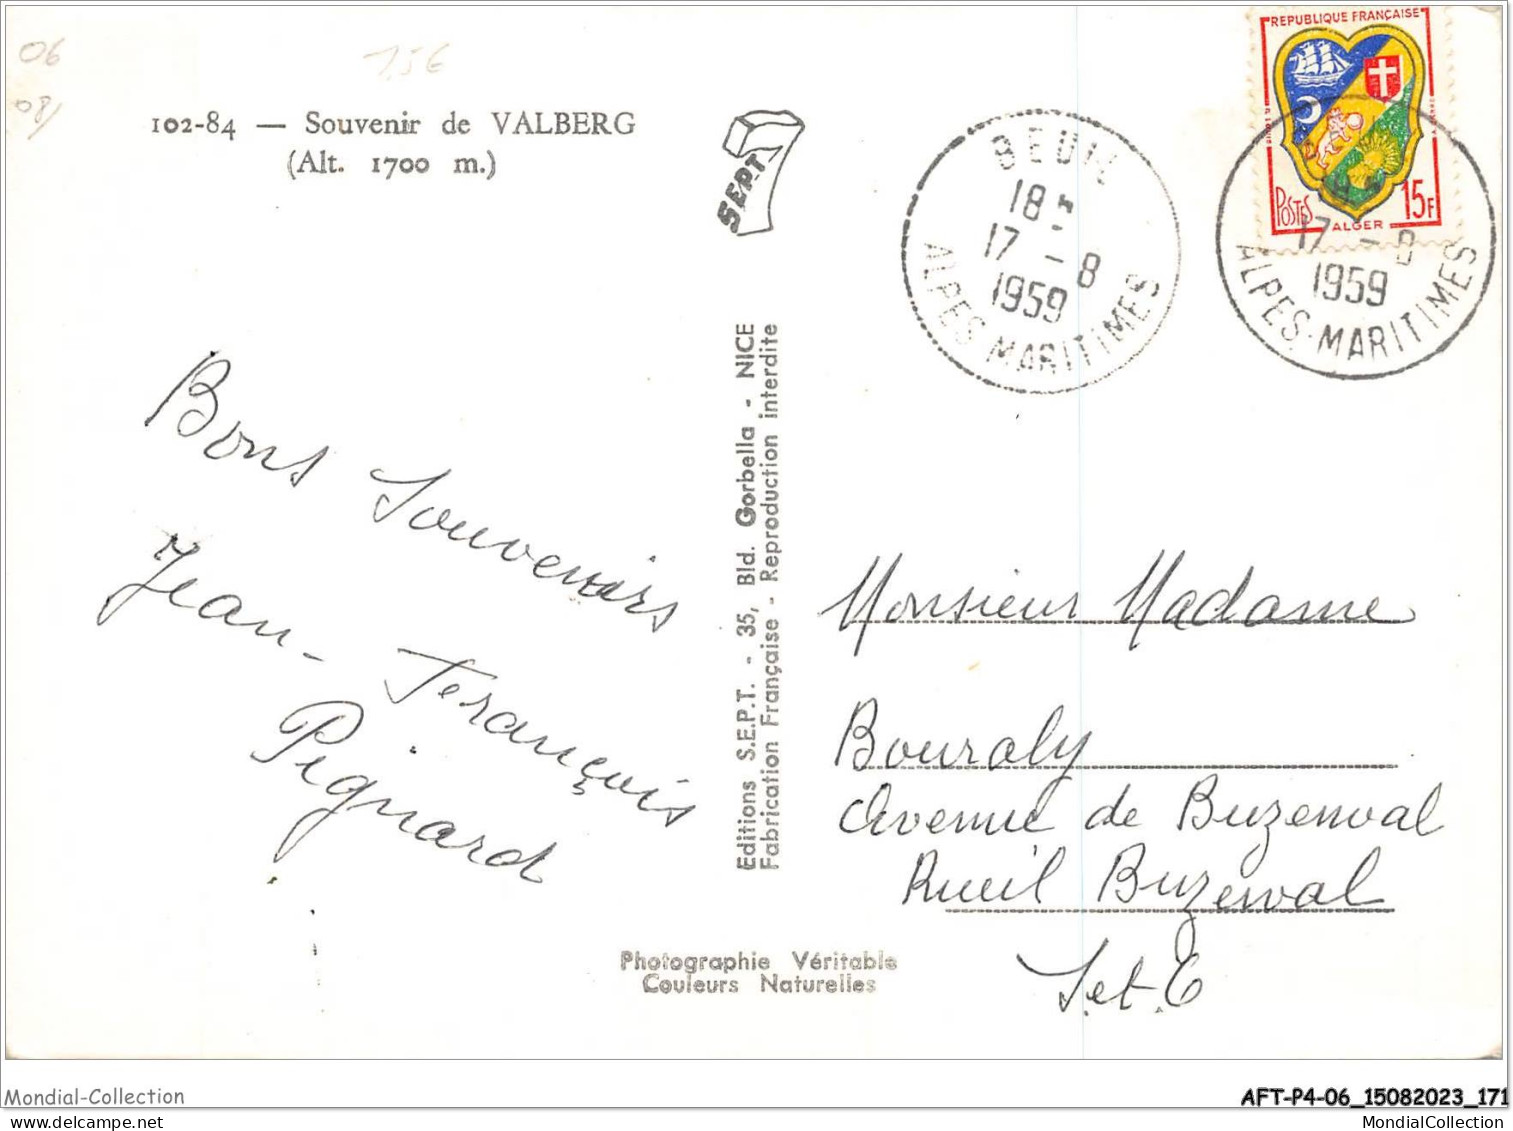 06
1,5€
08/
102-84 — Souvenir de VALBERG
(Alt. 1700 m.)
SEPT
BEUIL
18
17 - 8
1959
ALPES MARITIMES
REPUBLIQUE FRANÇAISE
POSTES
15F
ALGER
17 - 8
1959
ALPES-MARITIMES
Bons Souvenirs
Jean-François
Pignard
Editions S.E.P.T. - 35, Bld. Gorbella - NICE
Fabrication Française - Reproduction interdite
Monsieur Madame
Bouraly
Avenue de Buzenval
Rueil Buzenval
S.et.O
Photographie Véritable
Couleurs Naturelles
Mondial-Collection
AFT-P4-06_15082023_171
MondialCollection
MondialCollection